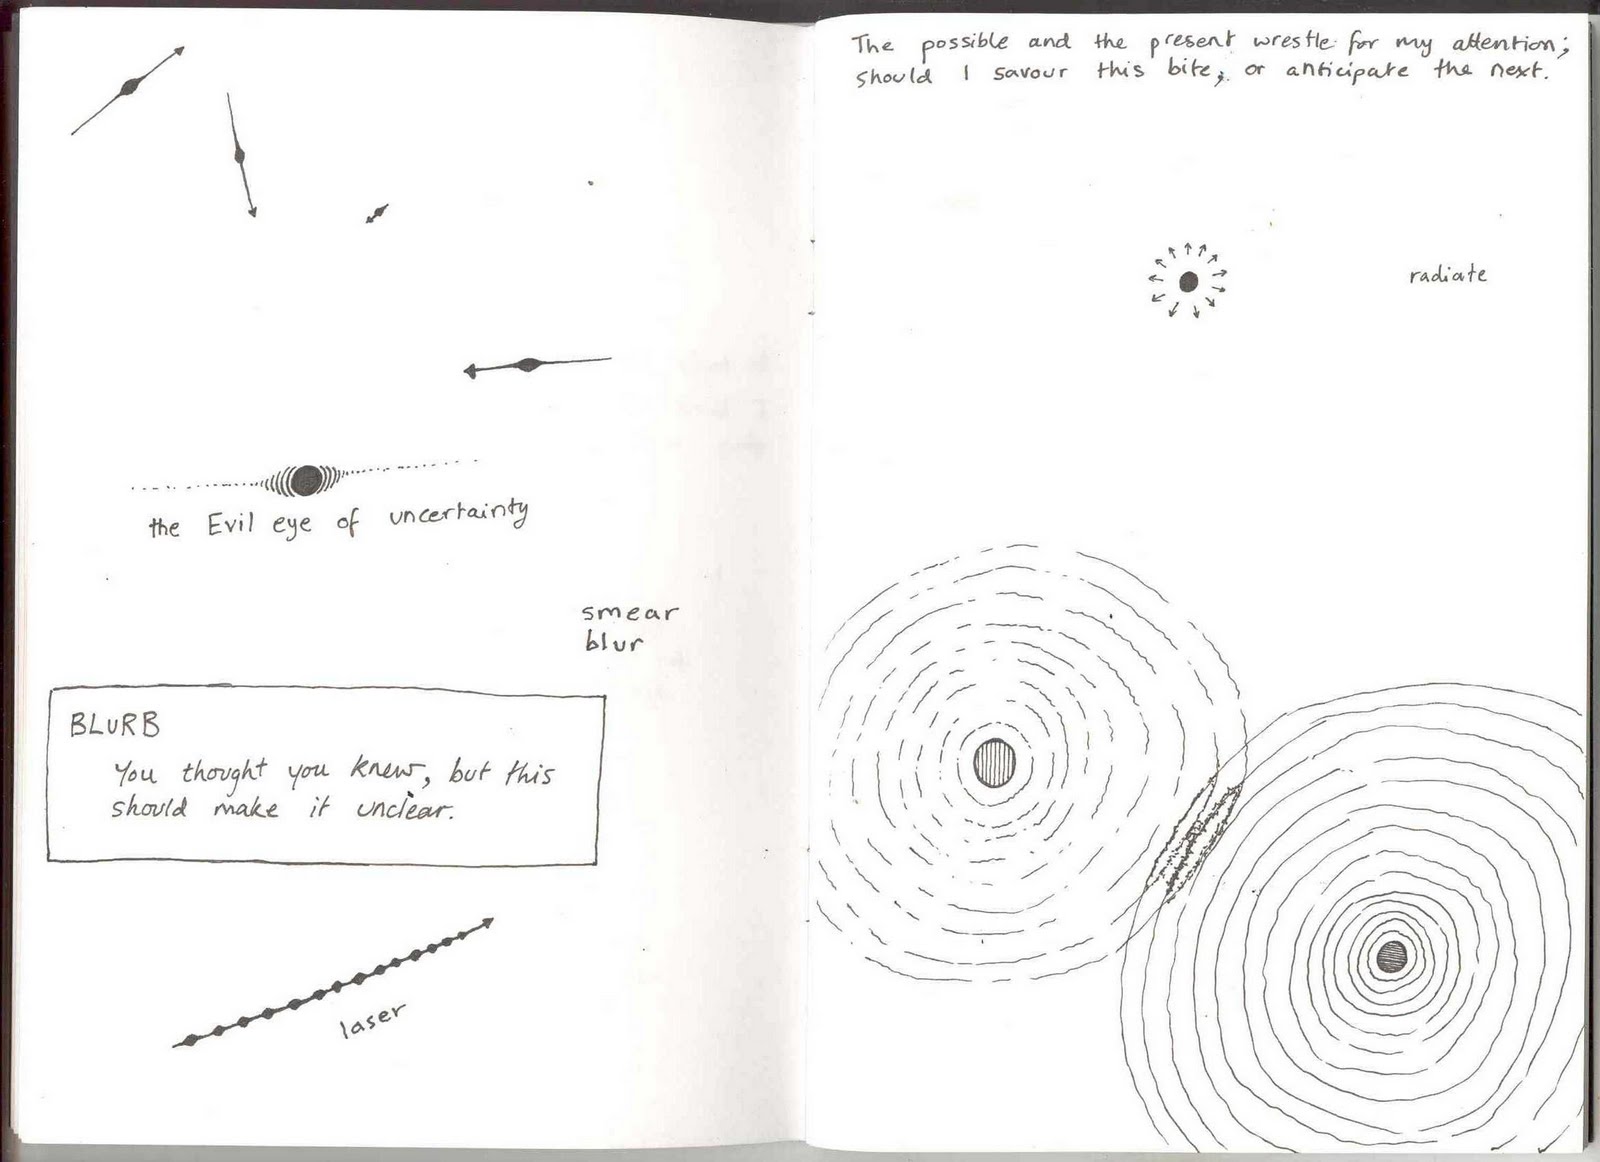 the Evil eye of uncertainty
smear
blur
BLURB
You thought you knew, but this
should make it unclear.
laser
The possible and the present wrestle for my attention;
should I savour this bite, or anticipate the next.
radiate